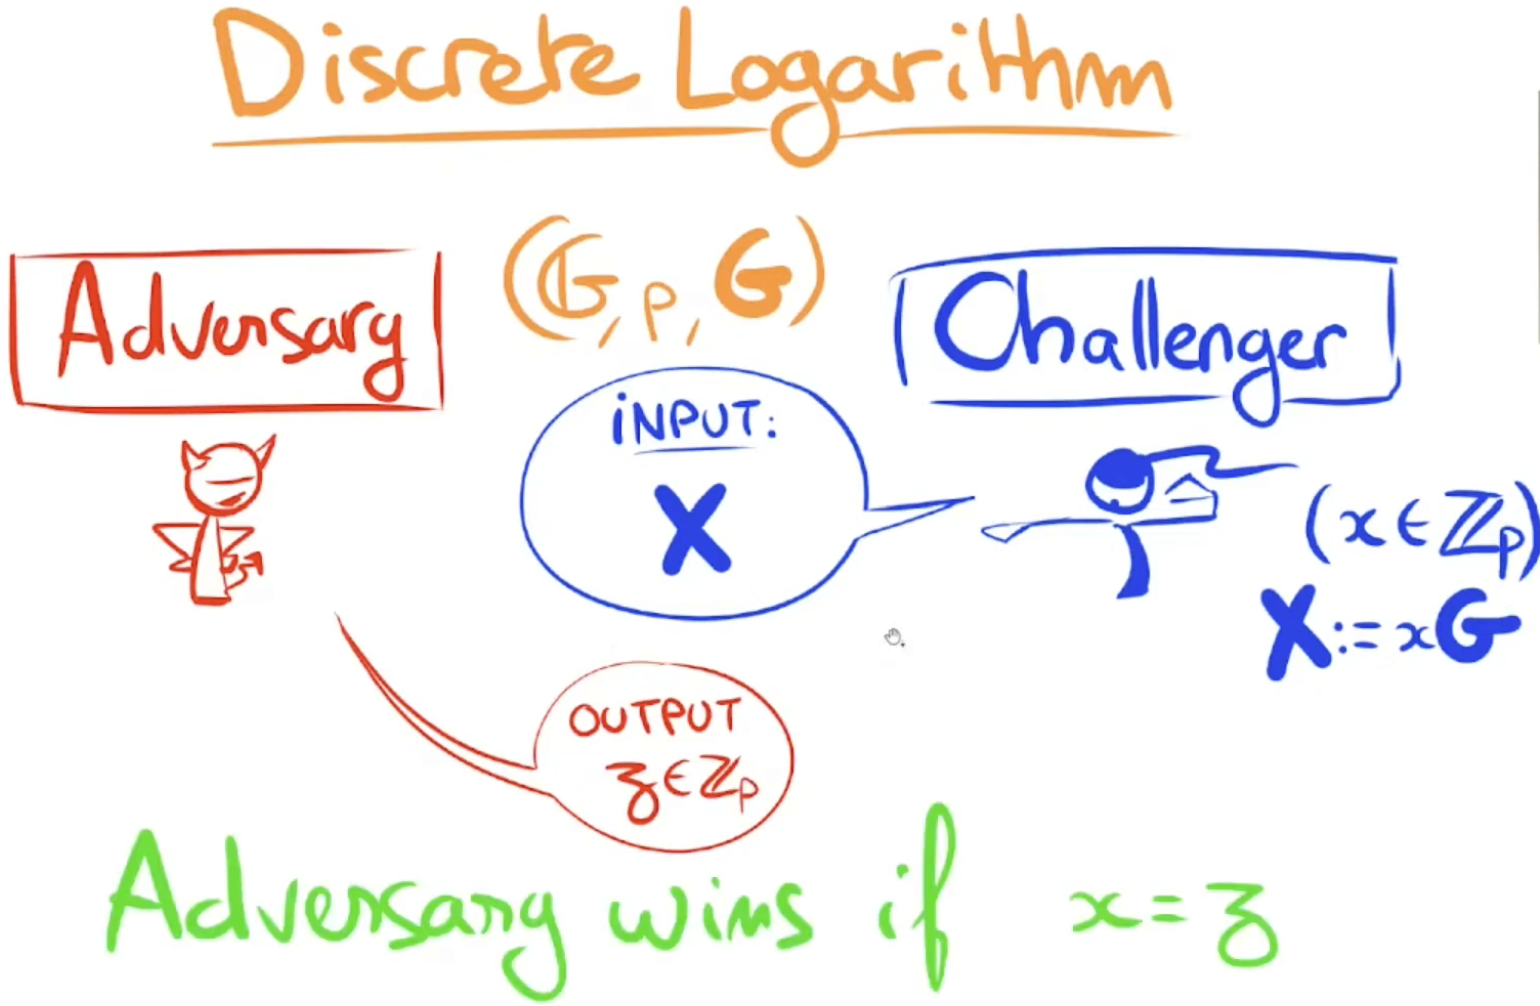 Discrete Logarithm
Adversary
(𝔾, p, G)
Challenger
INPUT:
X
(x ∈ ℤp)
X := xG
OUTPUT
z ∈ ℤp
Adversary wins if x = z